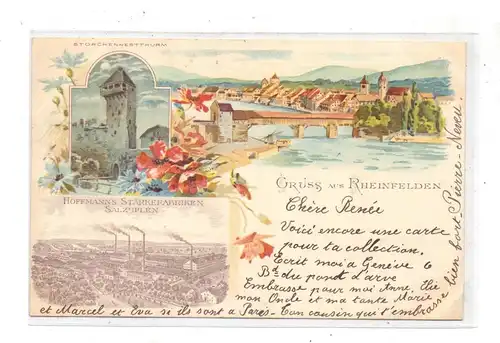 STORCHENNESTTHURM
GRUSS AUS RHEINFELDEN
HOFFMANN'S STÄRKEFABRIKEN
SALZUFLEN
Chère Renée
Voici encore une carte
pour ta collection.
Ecrit moi a Genève 6
Bd du pont d'arve
Embrasse pour moi Anne,
mon Oncle et ma tante Marie
et Marcel et Eva si ils sont a Paris - Ton cousin qui t'embrasse
bien fort Pierre - Neveu